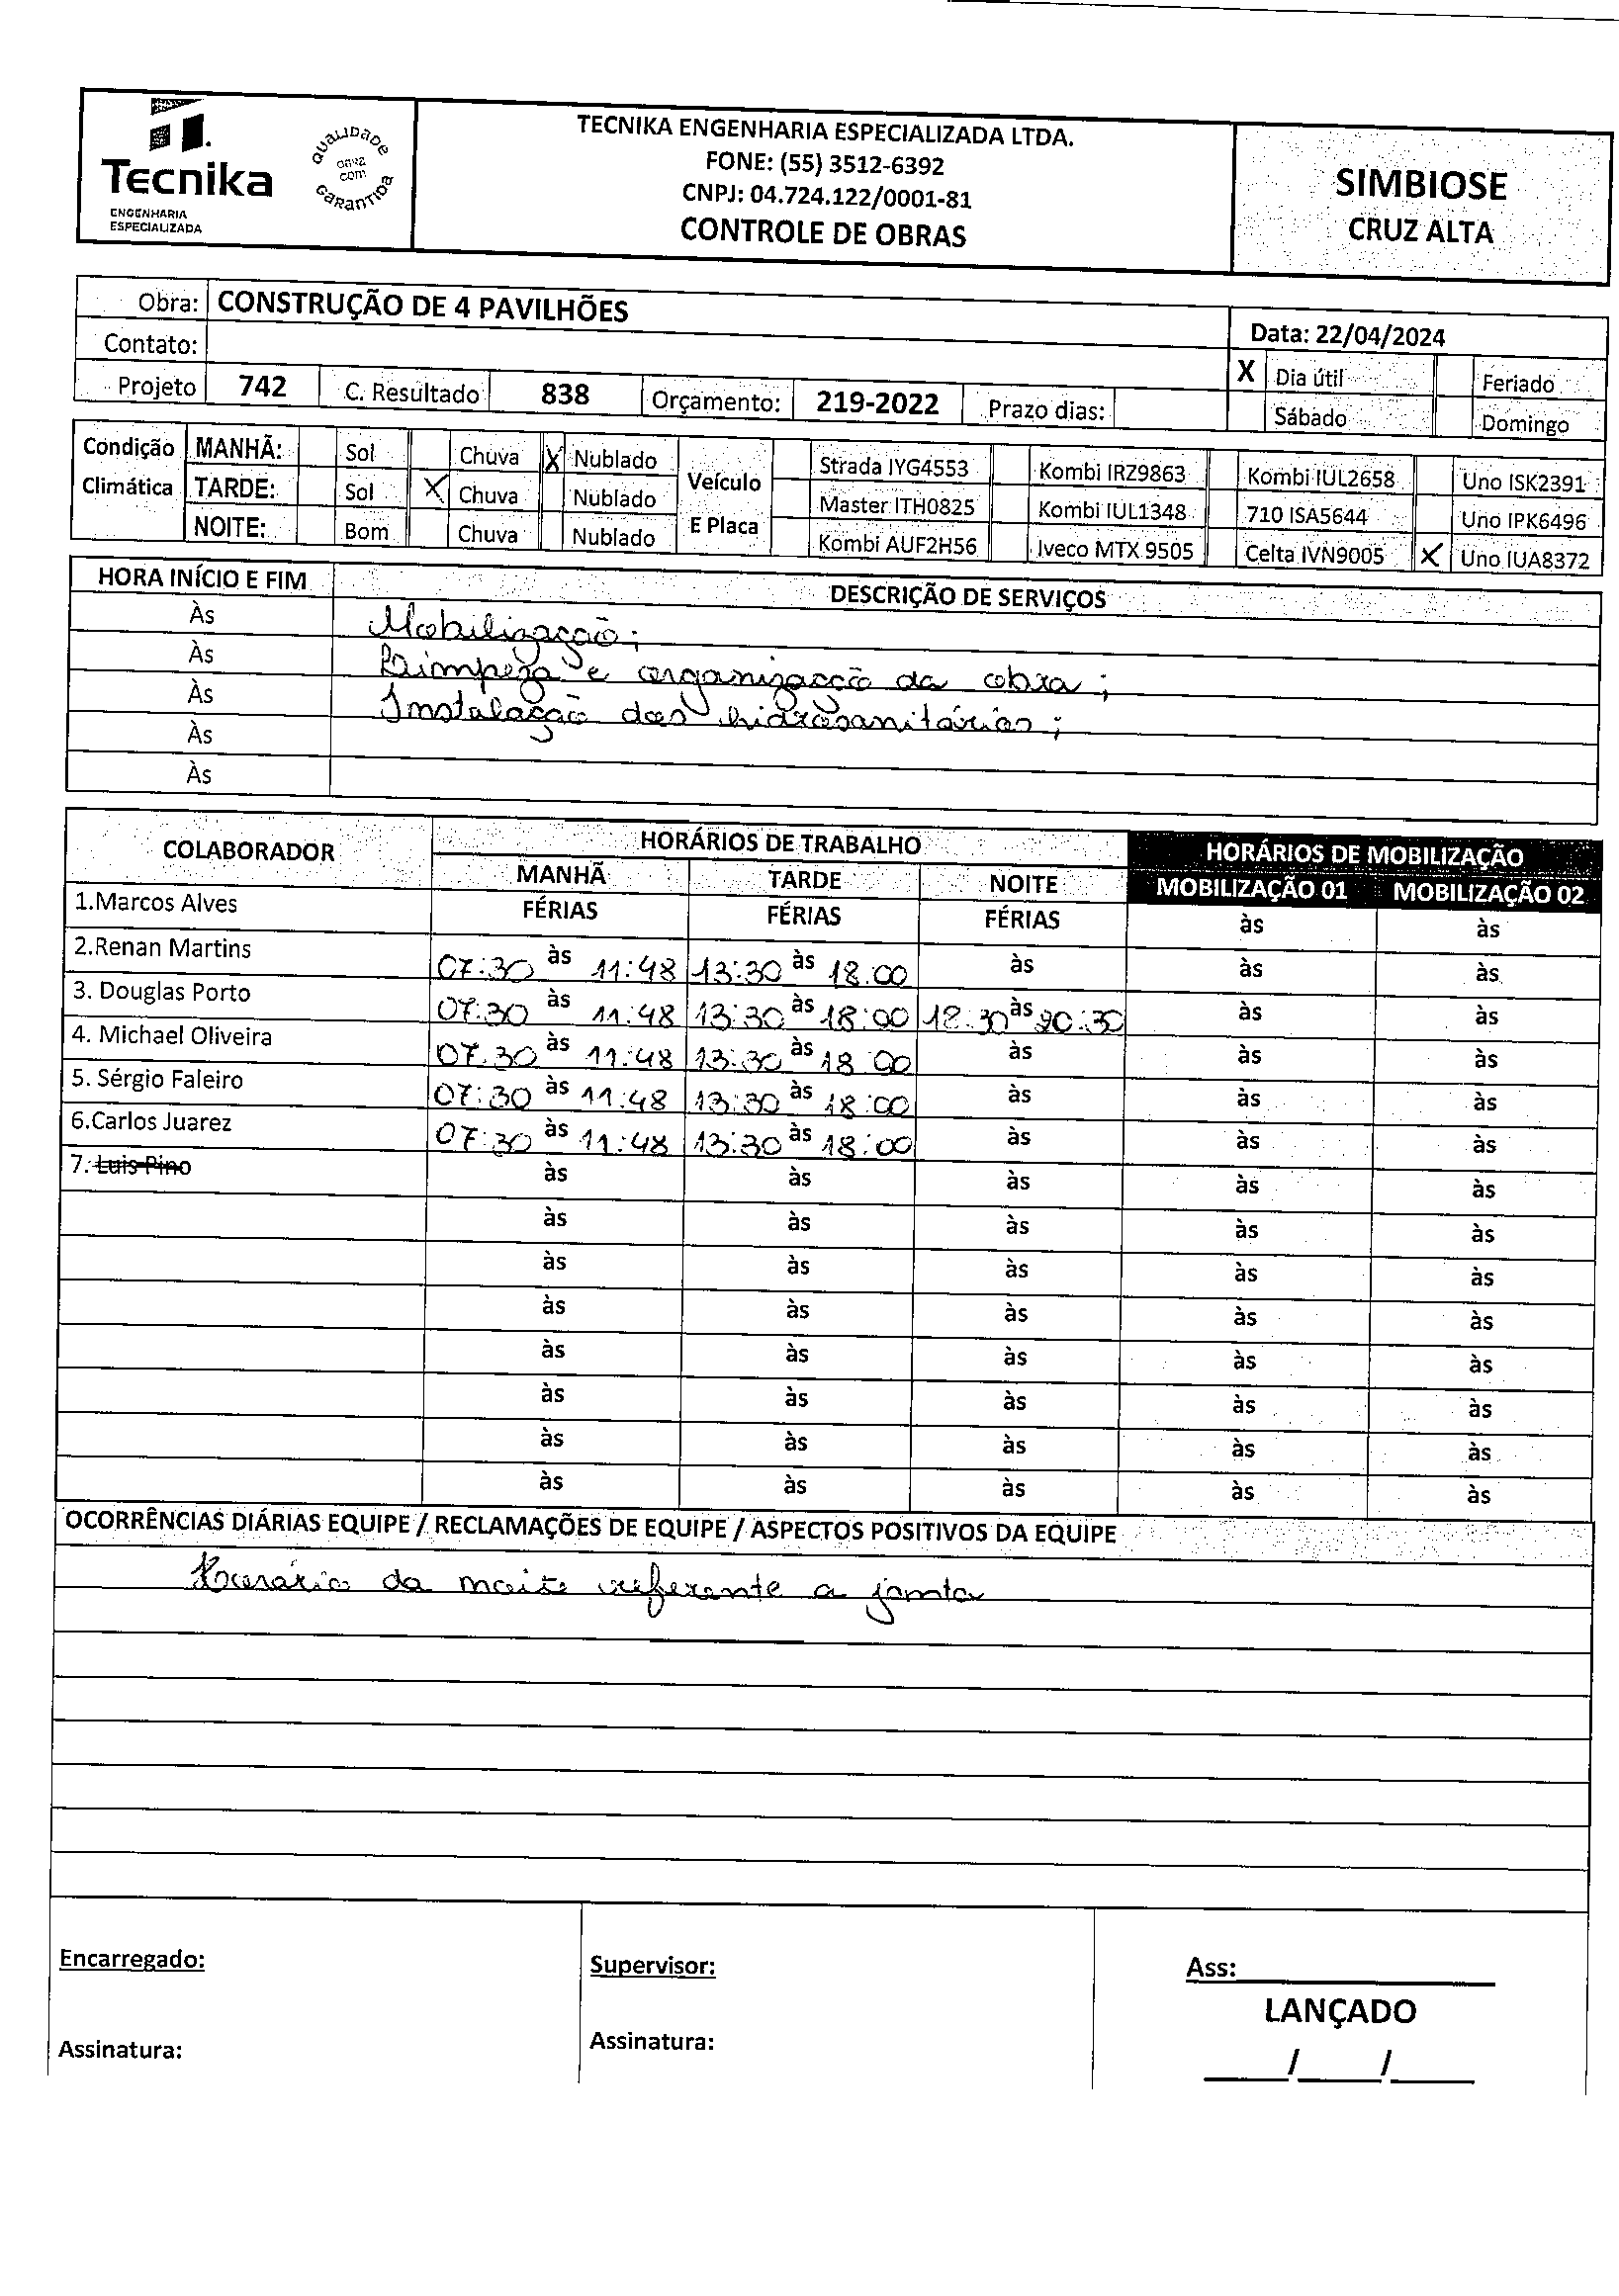 Tecnika
ENGENHARIA
ESPECIALIZADA
QUALIDADE
com
GARANTIDA
TECNIKA ENGENHARIA ESPECIALIZADA LTDA.
FONE: (55) 3512-6392
CNPJ: 04.724.122/0001-81
CONTROLE DE OBRAS
SIMBIOSE
CRUZ ALTA
Obra: CONSTRUÇÃO DE 4 PAVILHÕES
Data: 22/04/2024
Contato:
X Dia útil Feriado
Projeto 742 C. Resultado 838 Orçamento: 219-2022 Prazo dias:
Sábado Domingo
Condição Climática
MANHÃ: Sol Chuva X Nublado
TARDE: Sol X Chuva Nublado
NOITE: Bom Chuva Nublado
Veículo E Placa
Strada IYG4553 Kombi IRZ9863 Kombi IUL2658 Uno ISK2391
Master ITH0825 Kombi IUL1348 710 ISA5644 Uno IPK6496
Kombi AUF2H56 Iveco MTX 9505 Celta IVN9005 X Uno IUA8372
HORA INÍCIO E FIM DESCRIÇÃO DE SERVIÇOS
Às Mobilização;
Às Limpeza e organização da obra;
Às Instalação das hidrosanitárias;
Às
Às
COLABORADOR HORÁRIOS DE TRABALHO HORÁRIOS DE MOBILIZAÇÃO
MANHÃ TARDE NOITE MOBILIZAÇÃO 01 MOBILIZAÇÃO 02
1.Marcos Alves FÉRIAS FÉRIAS FÉRIAS às às
2.Renan Martins 07:30 às 11:48 13:30 às 18:00 às às às
3. Douglas Porto 07:30 às 11:48 13:30 às 18:00 18:30 às 20:30 às às
4. Michael Oliveira 07:30 às 11:48 13:30 às 18:00 às às às
5. Sérgio Faleiro 07:30 às 11:48 13:30 às 18:00 às às às
6.Carlos Juarez 07:30 às 11:48 13:30 às 18:00 às às às
7. Luis Pino às às às às às
às às às às às
às às às às às
às às às às às
às às às às às
às às às às às
às às às às às
às às às às às
OCORRÊNCIAS DIÁRIAS EQUIPE / RECLAMAÇÕES DE EQUIPE / ASPECTOS POSITIVOS DA EQUIPE
Horário da noite referente a janta
Encarregado:
Supervisor:
Ass:
LANÇADO
Assinatura:
Assinatura:
____/____/____